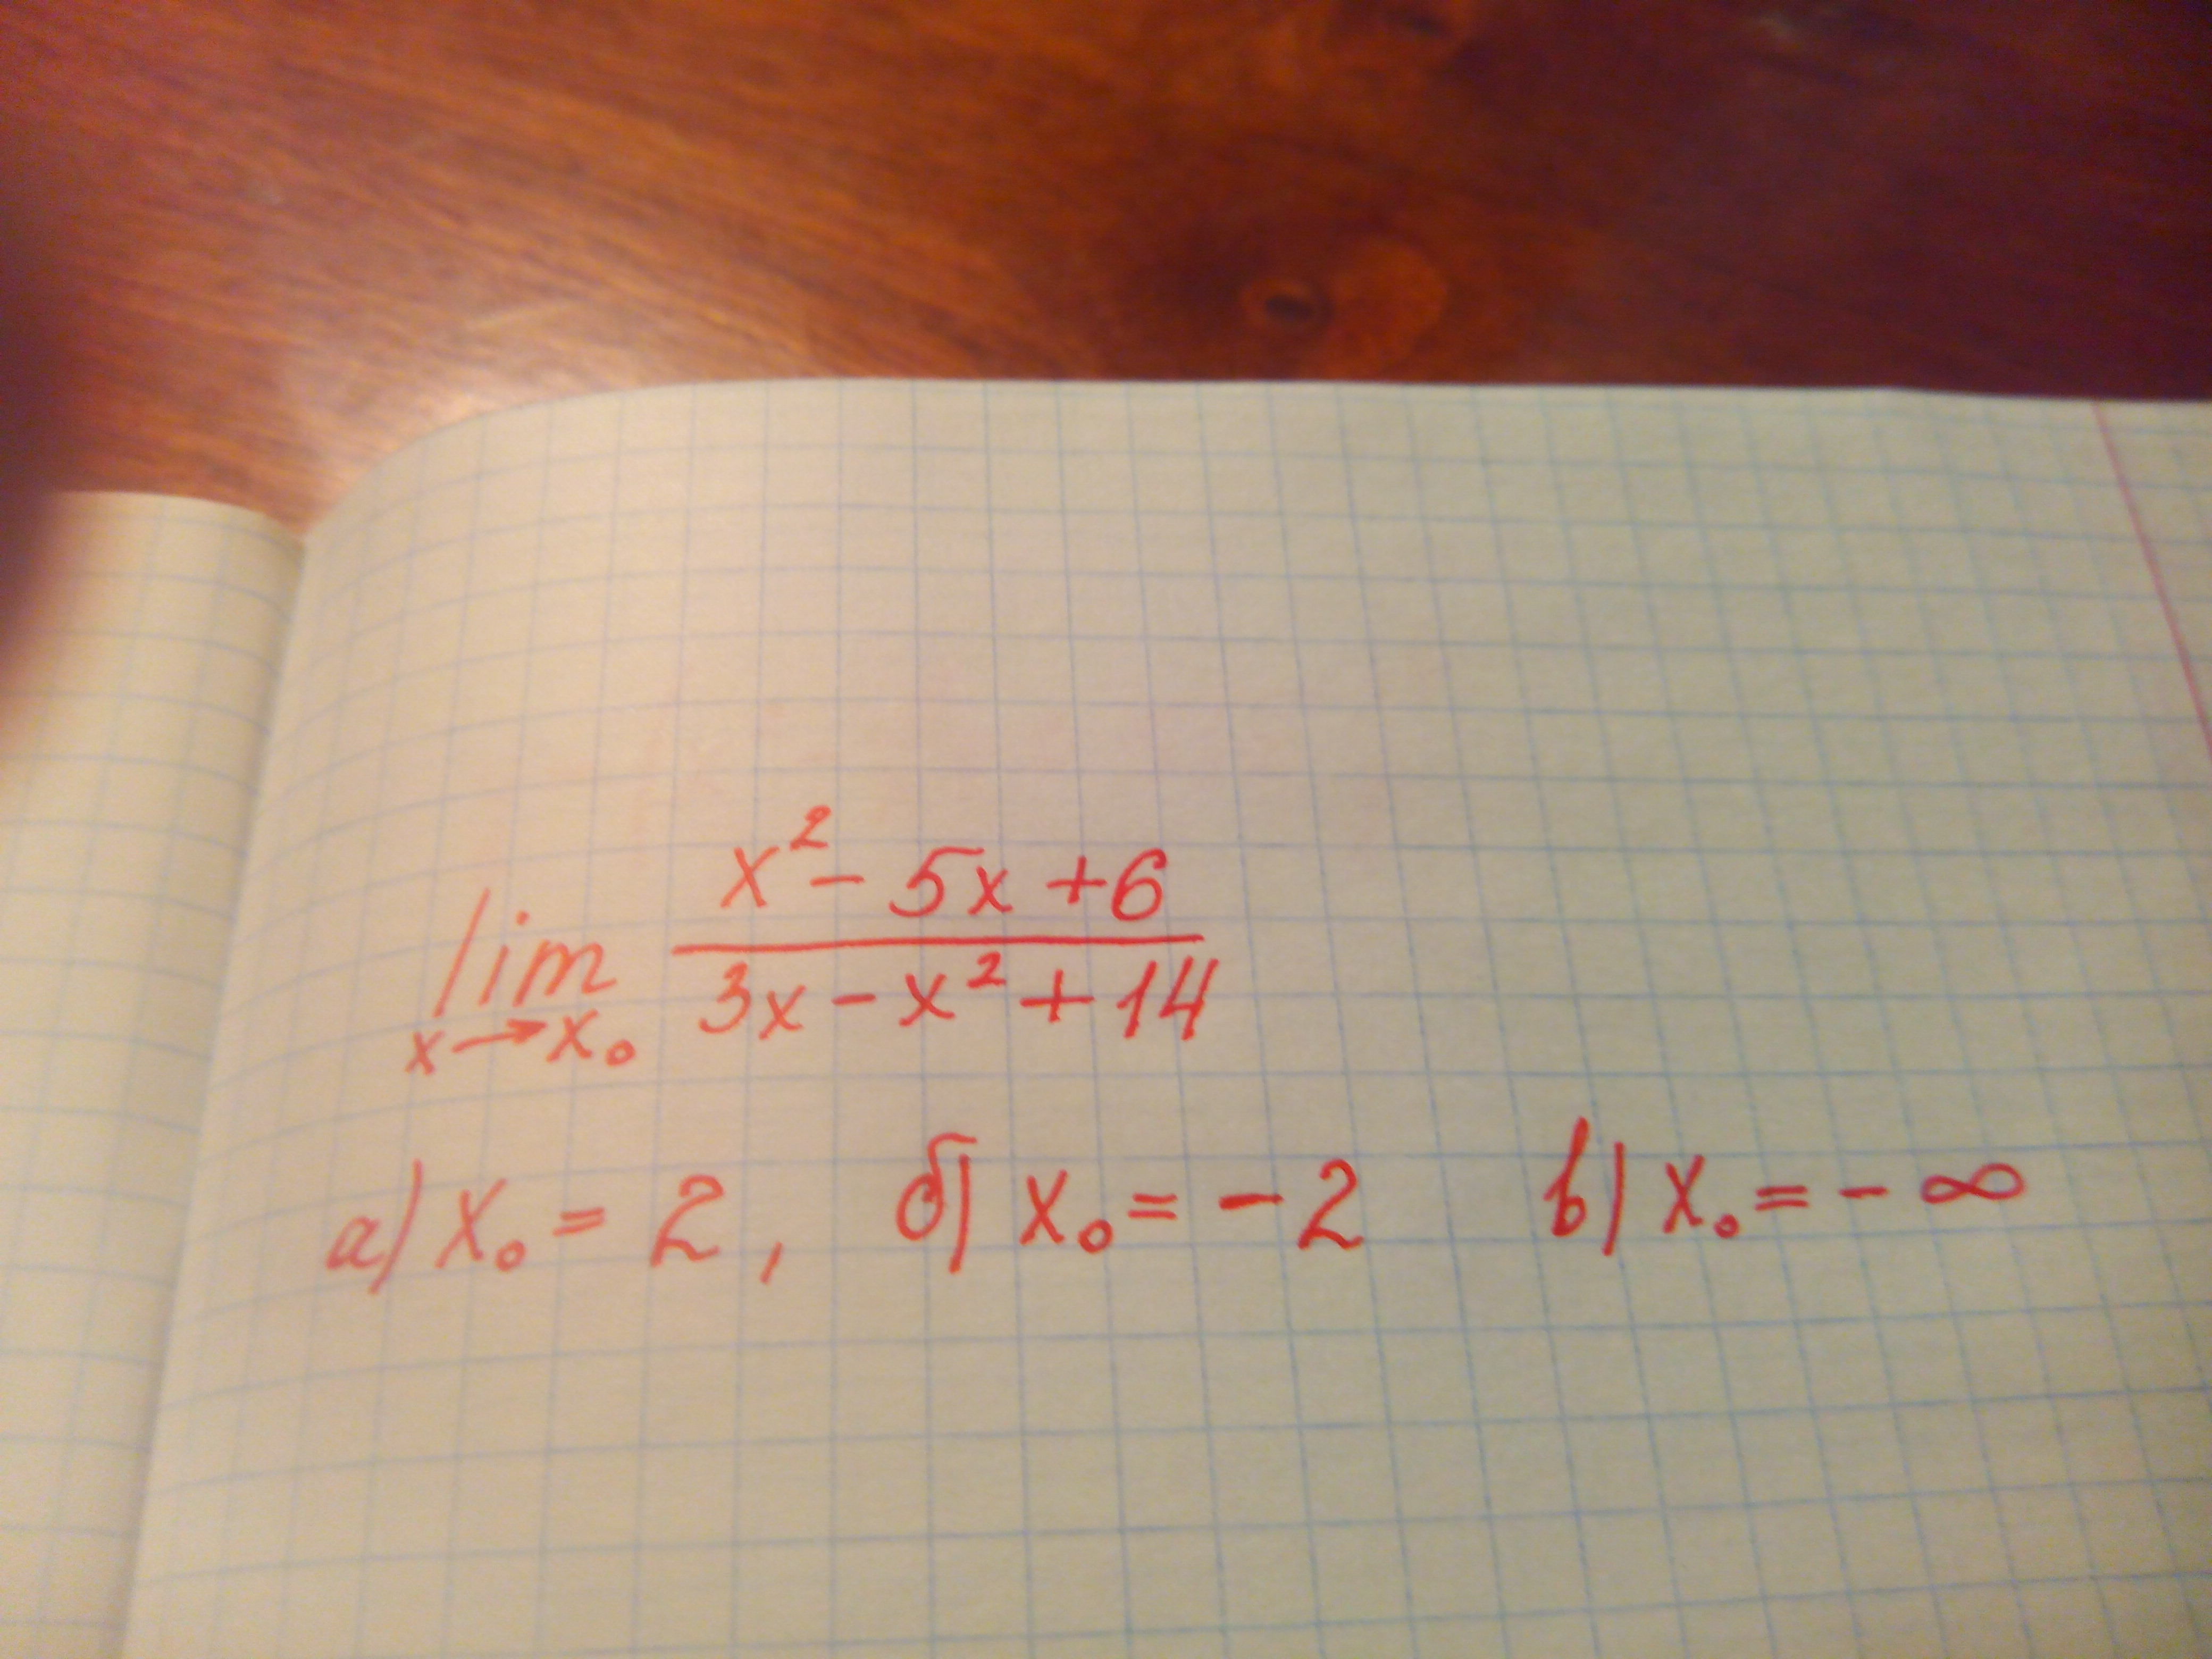 lim x→x₀ (x² - 5x + 6)/(3x - x² + 14)
а) x₀ = 2, б) x₀ = -2 в) x₀ = -∞